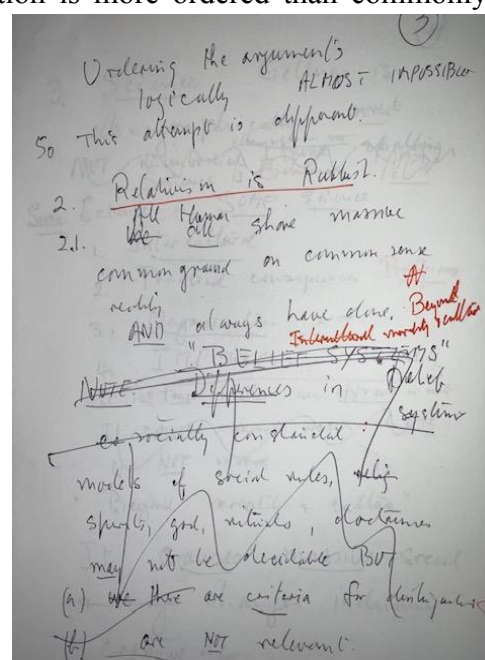 tion is more ordered than commonly
3
Ordering the arguments
logically ALMOST IMPOSSIBLE
So This attempt is different.
2. Relativism is Rubbish.
All Human
2.1. We all share massive
common ground on common sense
reality
AND always have done. Beyond
International morality & culture
"BELIEF SYSTEMS"
NOTE Differences in Belief
systems
socially constructed
models of social rules, relig
spirits, god, rituals, doctrines
may not be decidable BUT
(a) We there are criteria for
(b) are NOT relevant.